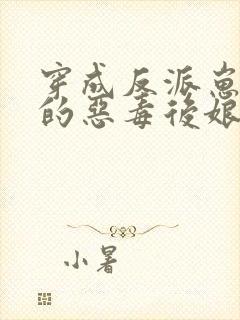 穿成反派崽崽
的惡毒後娘
小暑